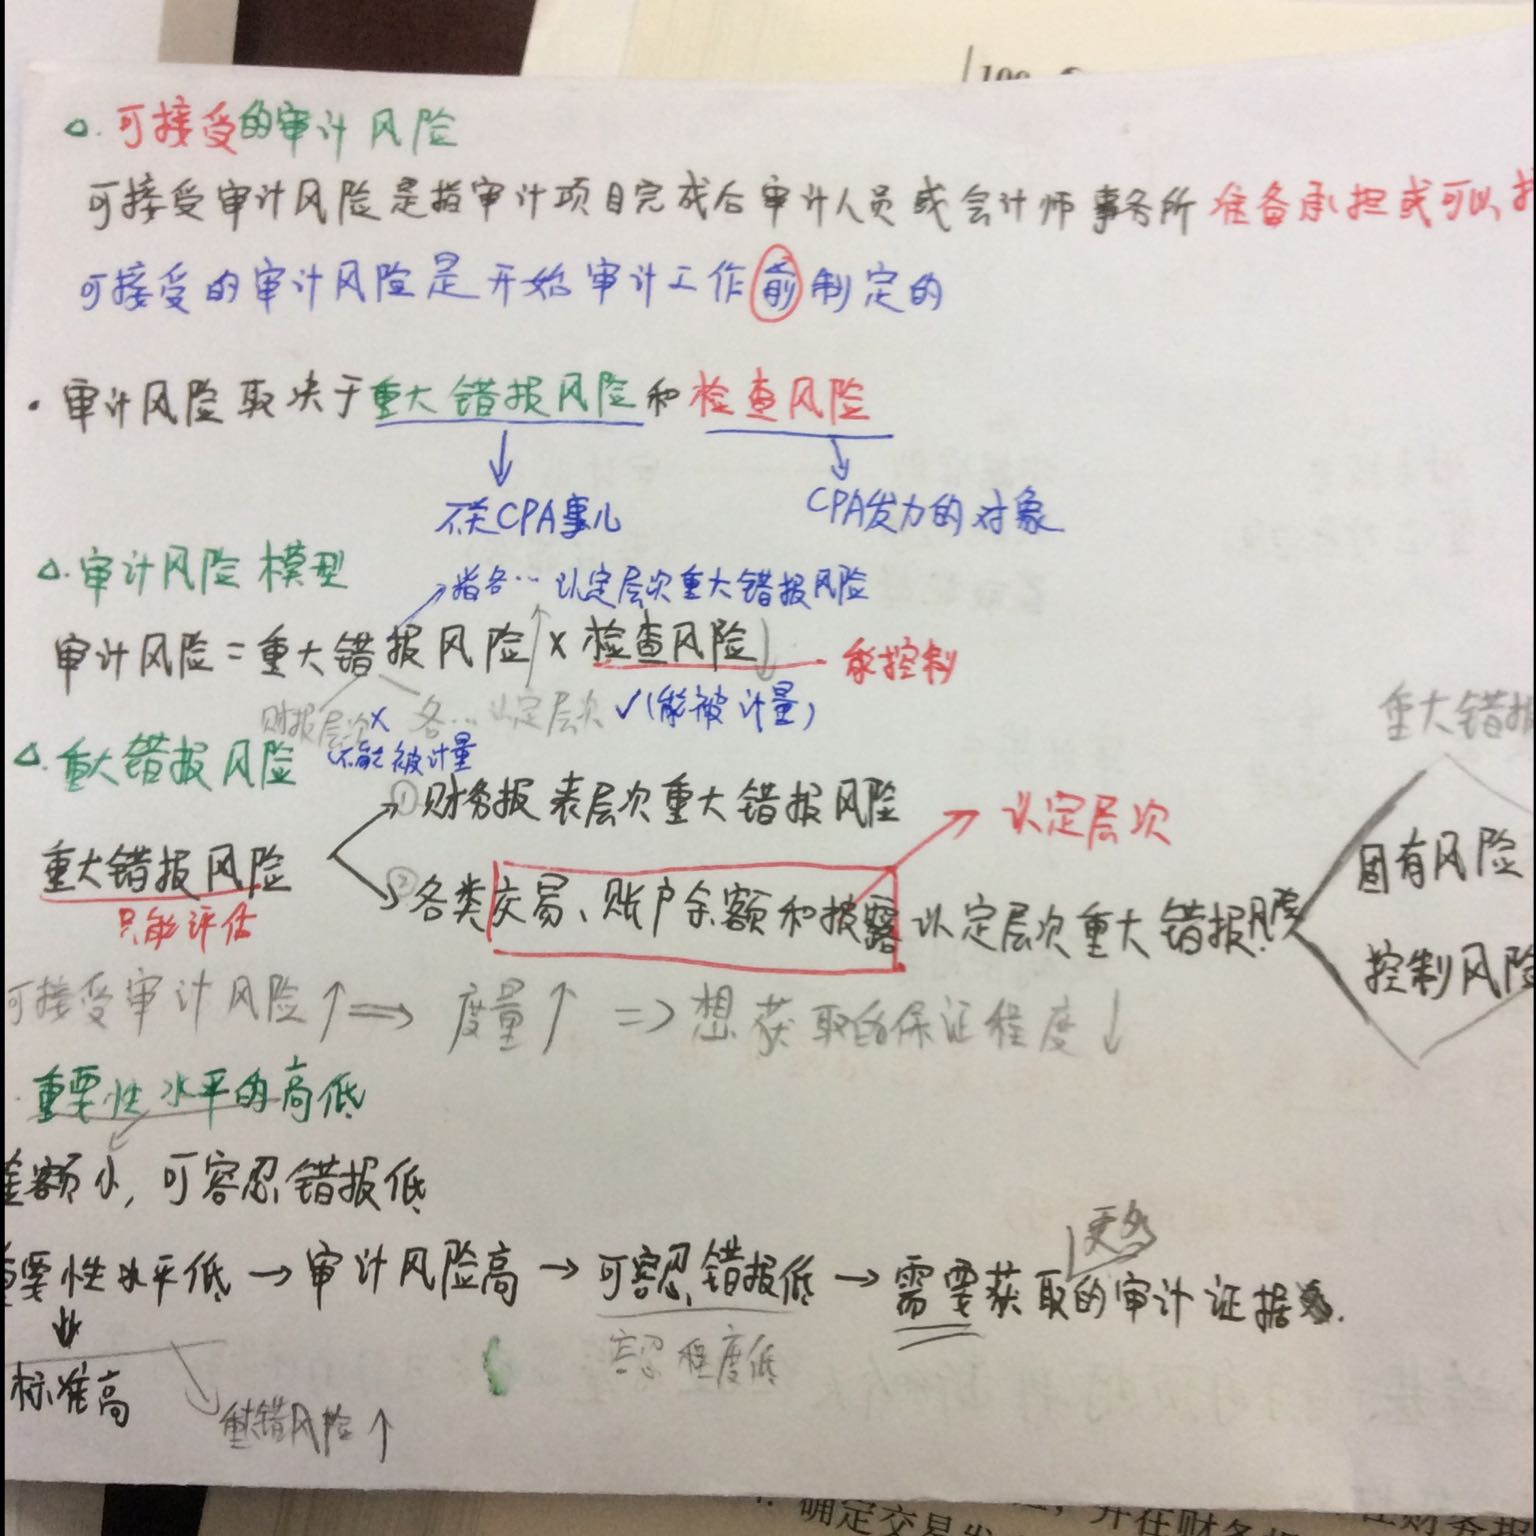 △.可接受的审计风险
可接受审计风险是指审计项目完成后审计人员或会计师事务所准备承担或可以
可接受的审计风险是开始审计工作前制定的
·审计风险取决于重大错报风险和检查风险
不关CPA事儿
CPA发力的对象
△.审计风险模型
指各…认定层次重大错报风险
审计风险=重大错报风险↑×检查风险↓ 能控制
财报层次× 各…认定层次 ✓(能被计量)
不能被计量
△.重大错报风险
重大错报
①财务报表层次重大错报风险
认定层次
重大错报风险
只能评估
②各类交易、账户余额和披露认定层次重大错报风险
固有风险
控制风险
可接受审计风险↑⇒度量↑⇒想获取的保证程度↓
·重要性水平的高低
金额小,可容忍错报低
更多
重要性水平低→审计风险高→可容忍错报低→需要获取的审计证据
容忍程度低
标准高
重错风险↑
确定交易